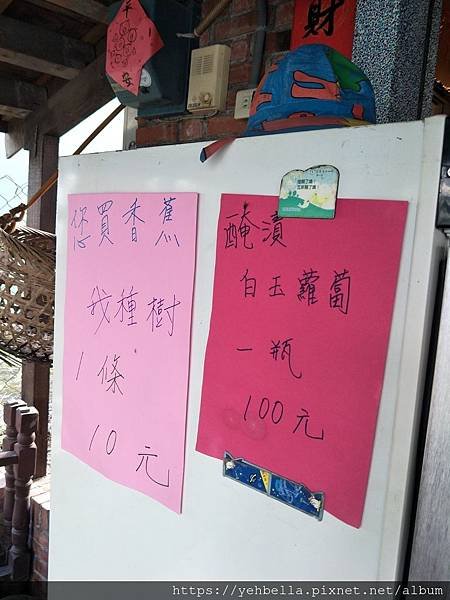 平安
財
您買香蕉
我種樹
1條
10元
醃漬
白玉蘿蔔
一瓶
100元
https://yehbella.pixnet.net/album